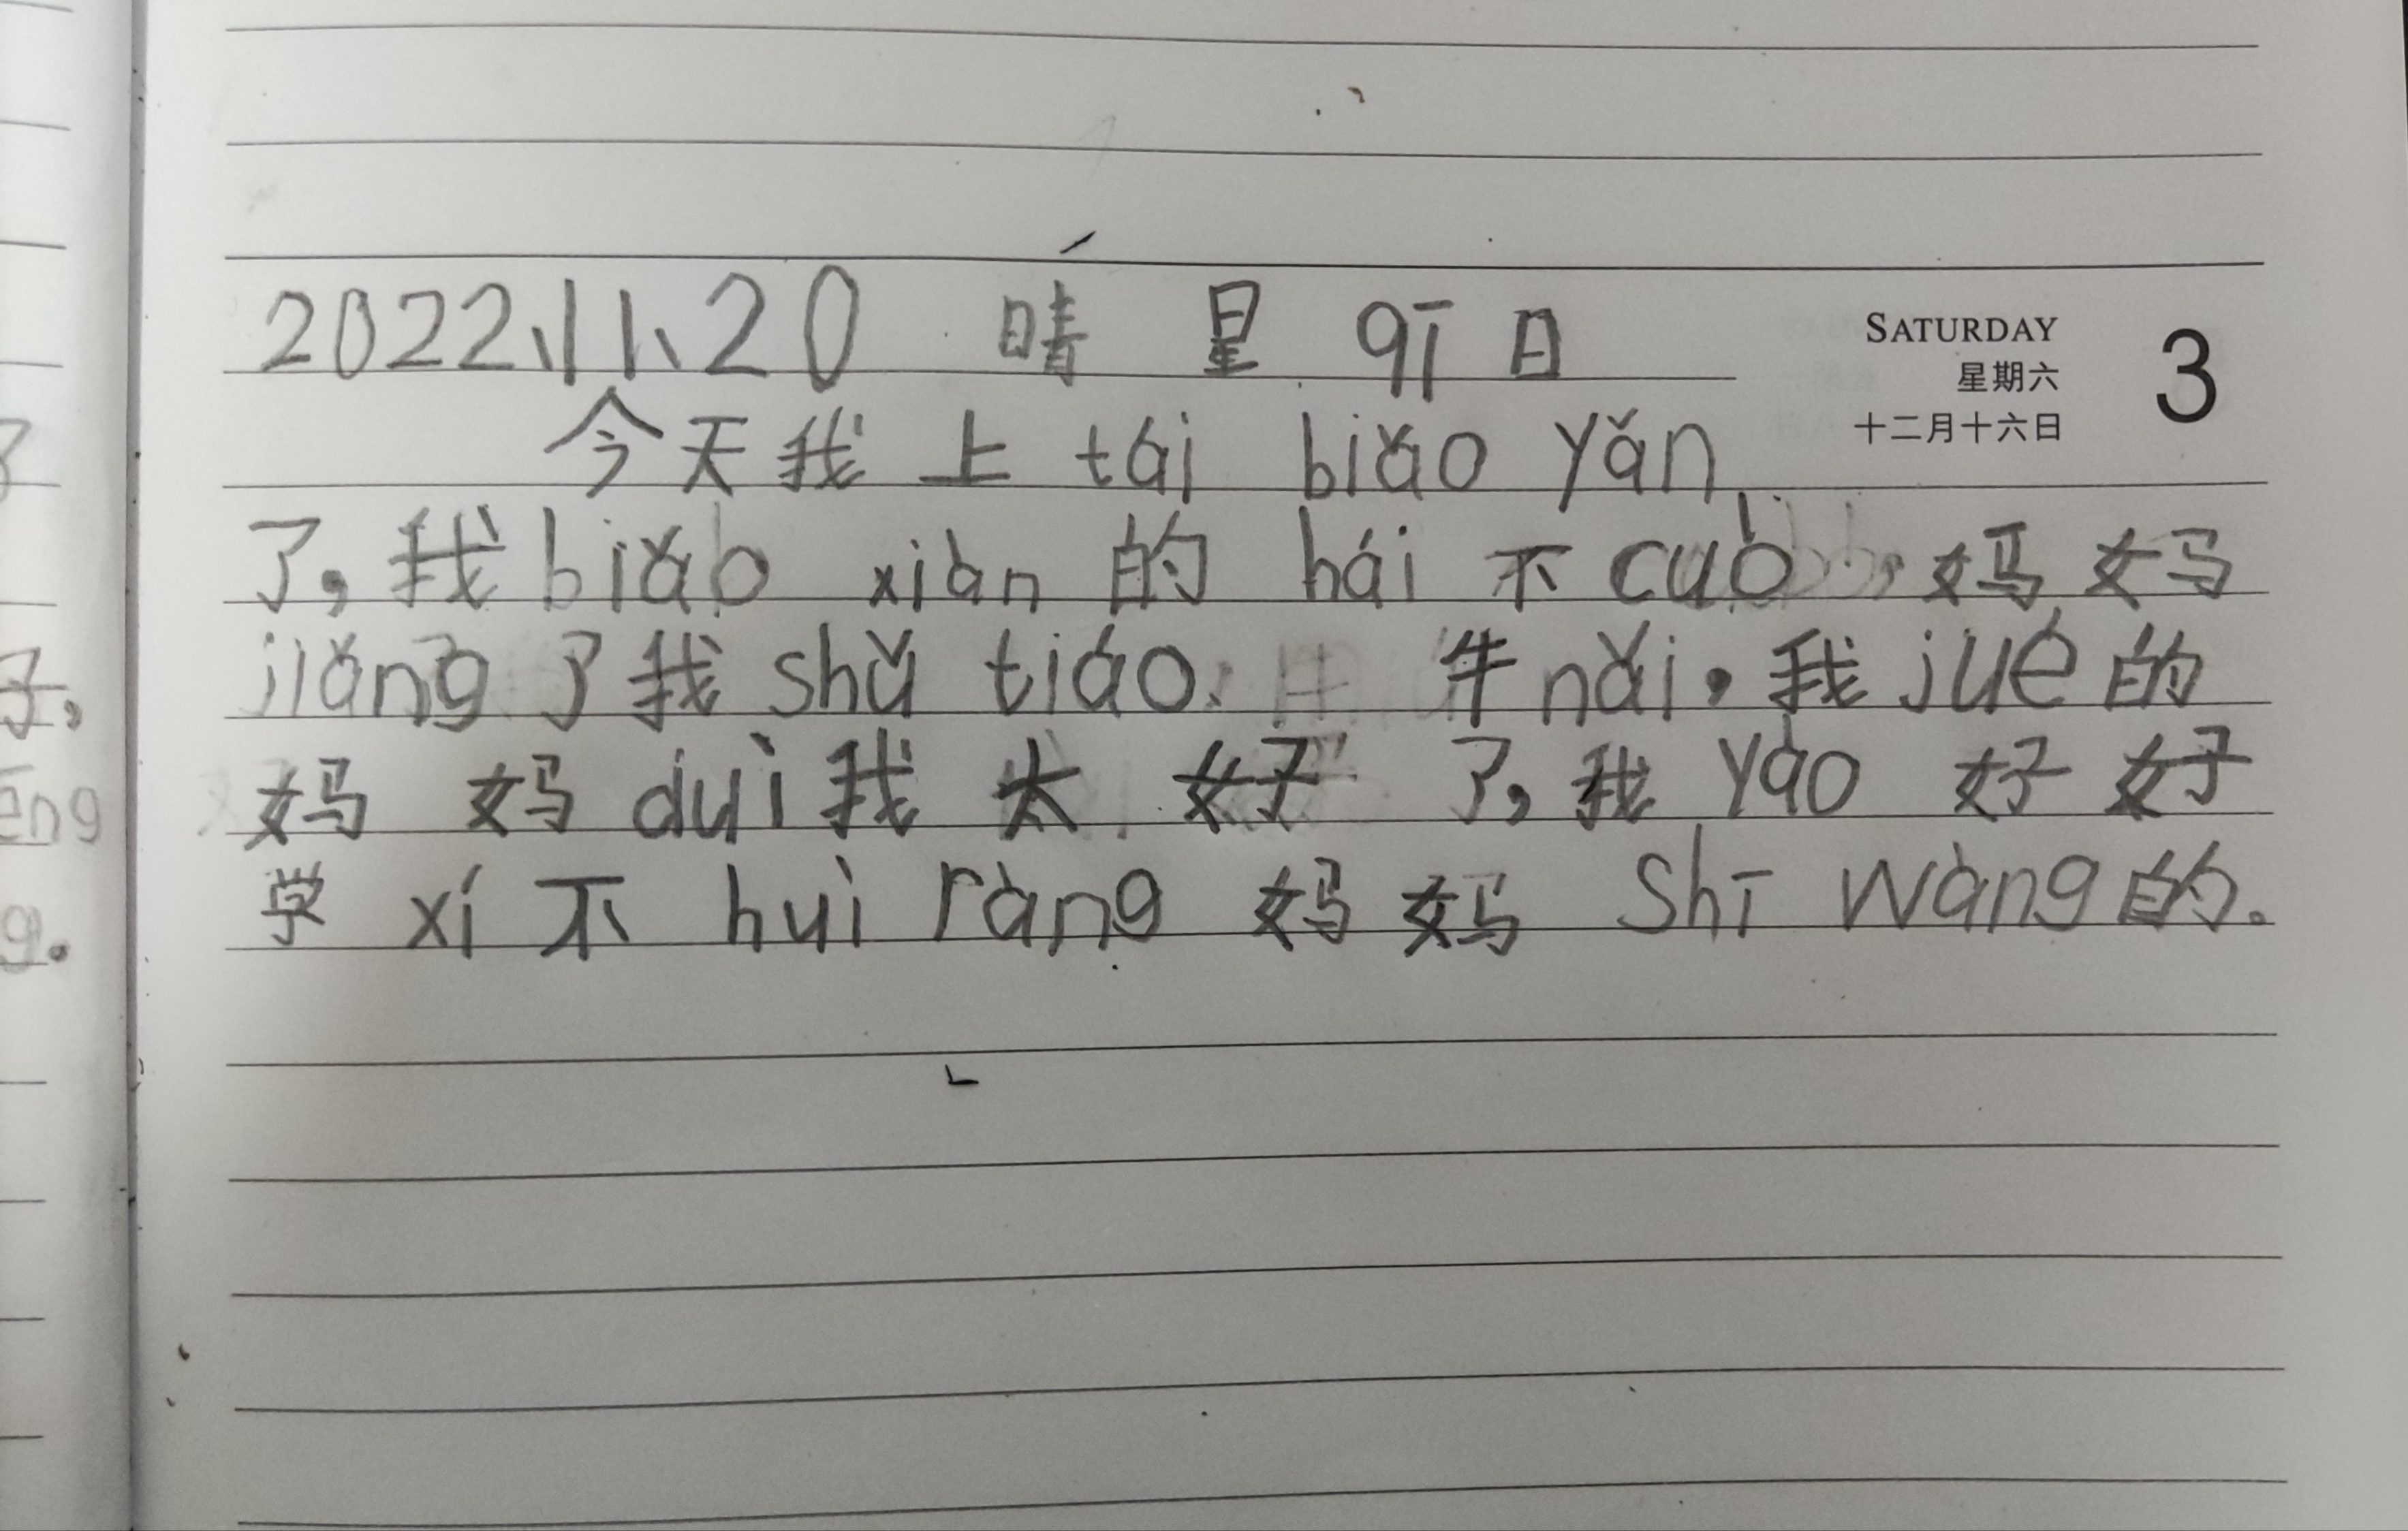 2022、11、20 晴 星 qī 日
SATURDAY
星期六
十二月十六日
3
今天我上 tái biǎo yǎn
了，我 biǎo xiàn 的 hái 不 cuò，妈妈
jiǎng 了我 shǔ tiáo、牛 nǎi，我 jué 的
妈妈 duì 我太好了，我 yào 好好
学 xí 不 huì ràng 妈妈 shī wàng 的。
子，
ēng
g。